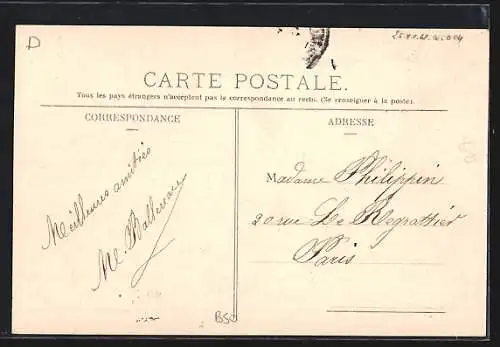 D
CARTE POSTALE.
Tous les pays étrangers n'acceptent pas la correspondance au recto. (Se renseigner à la poste).
CORRESPONDANCE
Meilleures amitiés
ADRESSE
Madame Philippin
20 rue Le Regrattier
Paris
BSO